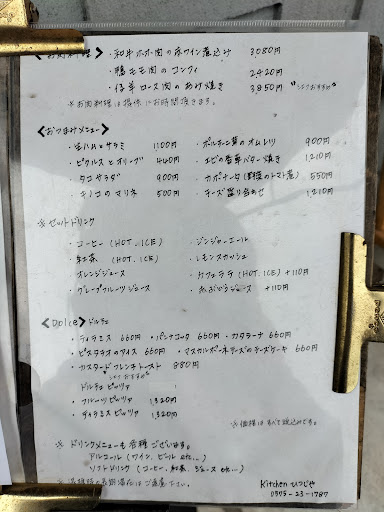 お肉料理
・和牛ホホ肉の赤ワイン煮込み 3,080円
・鴨モモ肉のコンフィ 2,420円
・仔羊ロース肉のあぶり焼き 3,850円 "シェフおすすめ"
※お肉料理は提供にお時間頂きます。
<おつまみメニュー>
・生ハムとサラミ 1100円 ・ポルチーニ茸のオムレツ 900円
・ピクルスとオリーブ 440円 ・エビの香草バター焼き 1,210円
・タコサラダ 900円 ・カポナータ(野菜のトマト煮) 550円
・キノコのマリネ 500円 ・チーズ盛り合わせ 1,210円
※セットドリンク
・コーヒー (HOT.ICE) ・ジンジャーエール
・紅茶 (HOT.ICE) ・レモンスカッシュ
・オレンジジュース ・カフェラテ (HOT.ICE) +110円
・グレープフルーツジュース ・ぶどうジュース +110円
<Dolce> ドルチェ
・ティラミス 660円 ・パンナコッタ 660円 ・カタラーナ 660円
・ピスタチオのアイス 660円 ・マスカルポーネチーズのチーズケーキ 660円
・カスタードフレンチトースト 880円
"シェフおすすめ"
ドルチェピッツァ
・フルーツピッツァ 1,320円
・ティラミスピッツァ 1,320円
※価格はすべて税込みです。
※ドリンクメニューも各種ございます。
アルコール (ワイン、ビール etc...)
ソフトドリンク (コーヒー、紅茶、ジュース etc...)
※混雑時の長時間滞在はご遠慮下さい。
Kitchen ひつじや
0575-23-1787